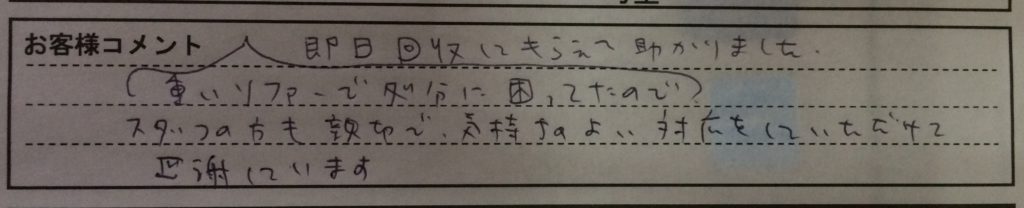 お客様コメント 即日回収にきてもらえて助かりました。
(重いソファーで処分に困ってたので)
スタッフの方も親切で、気持ちのよい対応をしていただけて
感謝しています